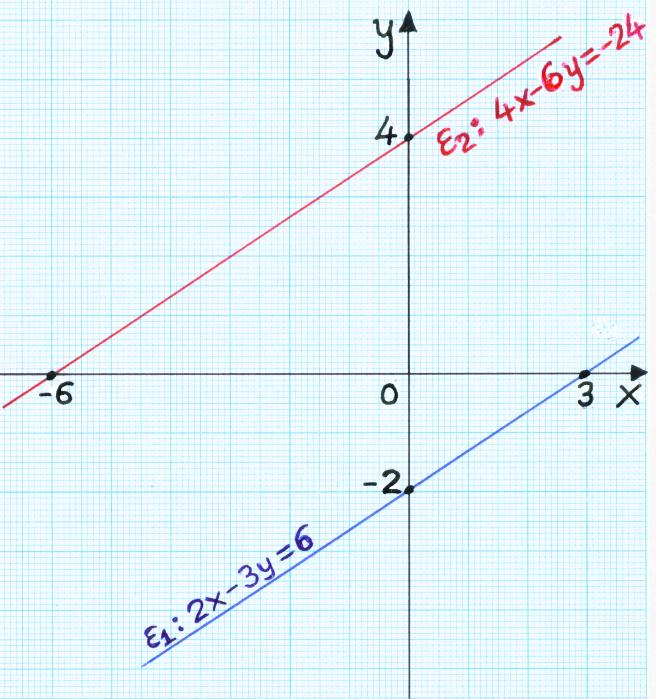 y
ε2: 4x-6y=-24
4
-6
0
3
x
-2
ε1: 2x-3y=6